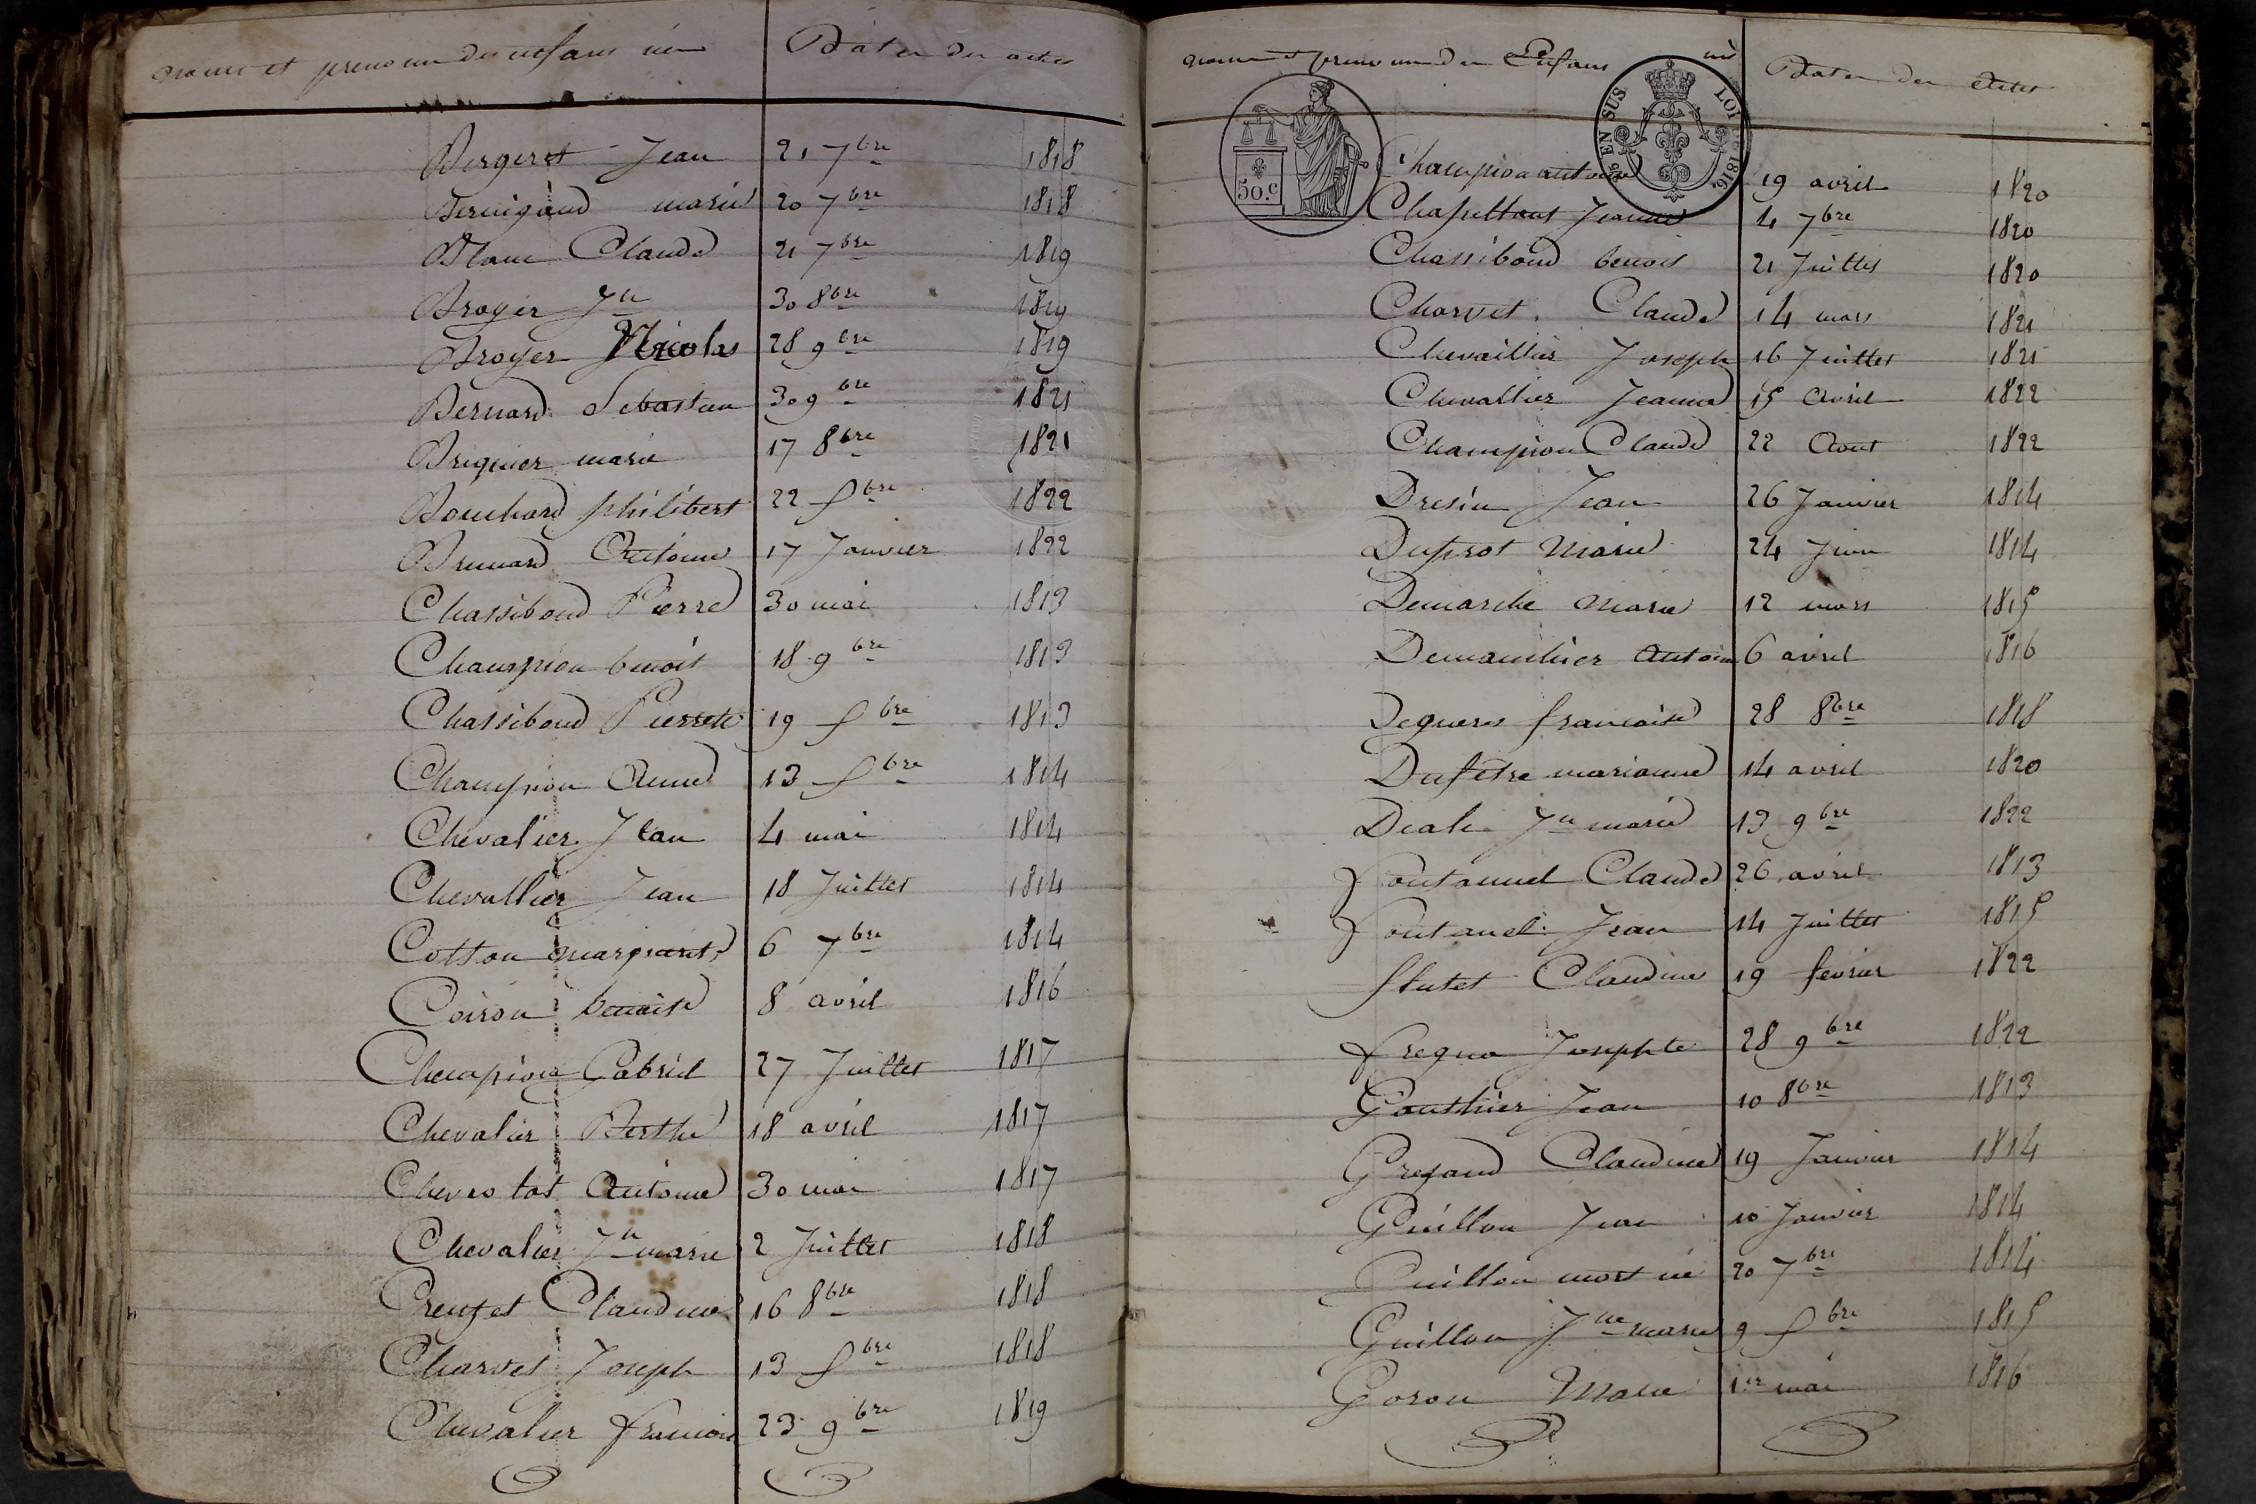 noms et prenoms des enfans nés Dates des actes
Bergeret Jean 21 7bre 1818
Bernigaud marie 20 7bre 1818
Blanc Claude 21 7bre 1819
Broyer Jn 30 8bre 1819
Broyer Nicolas 28 9bre 1819
Bernard Sebastien 30 9bre 1821
Briquier marie 17 8bre 1821
Bouchard philibert 22 Xbre 1822
Brunard Antoine 17 Janvier 1822
Chassiboud Pierre 30 mai 1813
Champion benoit 18 9bre 1813
Chassiboud Pierrete 19 Xbre 1813
Champion Anne 13 Xbre 1814
Chevalier Jean 4 mai 1814
Chevallier Jean 18 Juillet 1814
Cotton margueritte 6 7bre 1814
Coiron benoite 8 avril 1816
Champion Gabriel 27 Juillet 1817
Chevalier Berthe 18 avril 1817
Chevrotat Antoine 30 mai 1817
Chevalier Jn marie 2 Juillet 1818
Creuzet Claudine 16 8bre 1818
Charvet Joseph 13 Xbre 1818
Chevalier francois 23 9bre 1819
noms et prenoms des Enfans nés Dates des Actes
50.c
EN SUS LOI 1816
Champion antoine 19 avril 1820
Chapellant Jeanne 4 7bre 1820
Chassiboud benoit 21 Juillet 1820
Charvet Claude 14 mars 1821
Chevaillier Joseph 16 Juillet 1821
Chevallier Jeanne 15 Avril 1822
Champion Claude 22 Aout 1822
Dresin Jean 26 Janvier 1814
Duprot Marie 24 Juin 1814
Demarche marie 12 mars 1815
Demanchier Antoine 6 avril 1816
Degueres francoise 28 8bre 1818
Dufetre marianne 14 avril 1820
Deale Jn marie 13 9bre 1822
fontannel Claude 26 avril 1813
fontanel Jean 14 Juillet 1815
flutet Claudine 19 fevrier 1822
fregna Josephte 28 9bre 1822
Gouthier Jean 10 8bre 1813
Gregaud Claudine 19 Janvier 1814
Guillon Jean 10 Janvier 1814
Guillon mort né 20 7bre 1814
Guillon Jne marie 9 Xbre 1815
Goron Marie 1er mai 1816